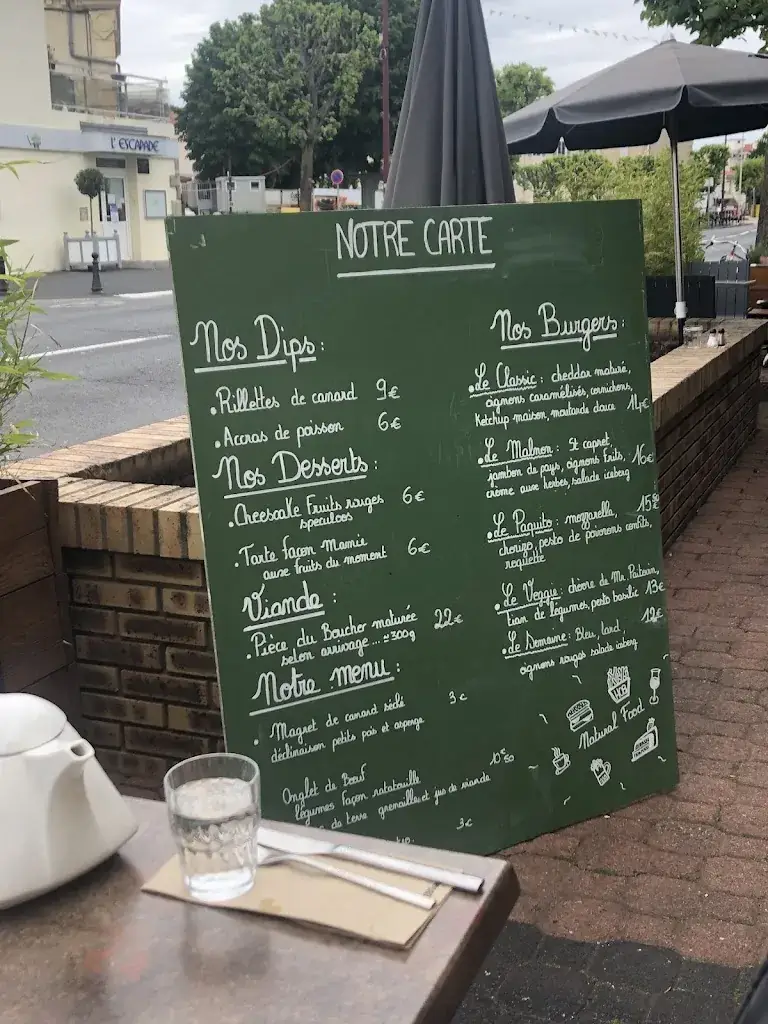 L'ESCAPADE
NOTRE CARTE
Nos Dips :
• Rillettes de canard 9€
• Accras de poisson 6€
Nos Desserts :
• Cheescake Fruits rouges 6€
speculoos
• Tarte façon Mamie
aux fruits du moment 6€
Viande :
• Pièce du Boucher maturée 22€
selon arrivage ... ≃300g
Notre menu :
• Magret de canard séché 3€
déclinaison petits pois et asperge
Onglet de Bœuf 10€50
légumes façon ratatouille
de terre grenaille et jus de viande
3€
Nos Burgers :
• Le Classic : cheddar maturé,
oignons caramélisés, cornichons,
Ketchup maison, moutarde douce 14€
• Le Malmon : St capret,
jambon de pays, oignons frits, 16€
crème aux herbes, salade iceberg
• Le Paquito : mozzarella, 15€50
chorizo, pesto de poivrons confits,
roquette
• Le Veggie : chèvre de Mr. Poitevin, 13€
tian de légumes, pesto basilic
• Le Semaine : Bleu, lard, 12€
oignons rouges salade iceberg
Natural Food